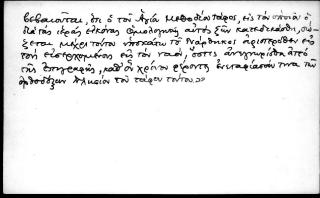 βεβαιοῦται, ὅτι ὁ τοῦ Ἁγίου Μεθοδίου τάφος, εἰς τὸν ὁποῖον ὁ
διὰ τὰς ἱερὰς εἰκόνας ὁμολογητὴς αὐτὸς ζῶν κατεδικάσθη, σώ-
ζεται μέχρι τούτου ὑποκάτω τοῦ νάρθηκος ἀριστερόθεν εἰς
τοὺς εἰσερχομένους εἰς τὸν ναόν, ὅστις ἀνεγνωρίσθη ἀπὸ
τῆς ἐπιγραφῆς, καθ' ὃν χρόνον φέροντες ἐνεταφίασαν τινα τῶν
ὀρθοδόξων πλησίον τοῦ τάφου τούτου.»